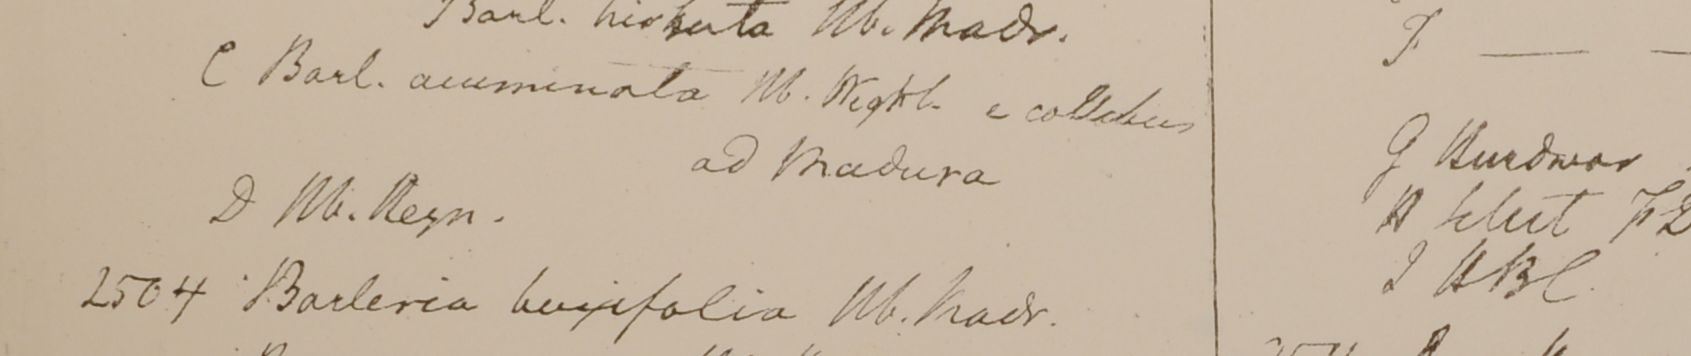 Barl. hirsuta Hb. Madr.
C Barl. acuminata Hb. Wight. e collibus
ad Madura
D Hb. Heyn.
2504 Barleria buxifolia Hb. Madr.
F
G Hurdwar
H
I HBC